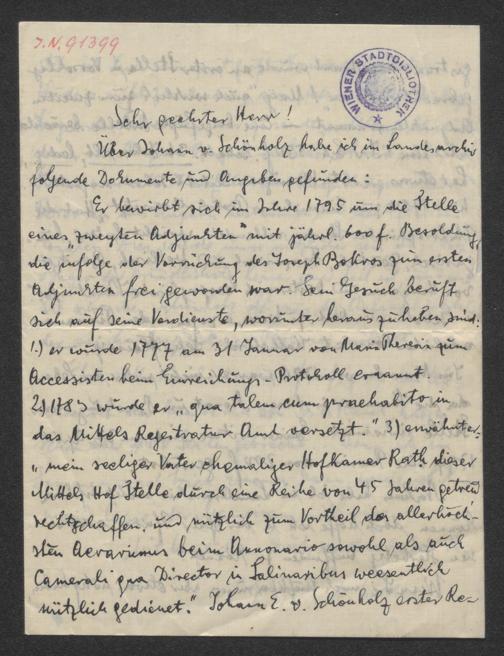 J.N. 91399
WIENER STADTBIBLIOTHEK
Sehr geehrter Herr!
Über Johann v. Schönholz habe ich im Landesarchiv
folgende Dokumente und Angaben gefunden:
Er bewirbt sich im Jahre 1795 um die Stelle
eines „zweyten Adjunkten" mit jährl. 600 f. Besoldung,
die infolge der Vorrückung des Joseph Bokros zum ersten
Adjunkten frei geworden war. Sein Gesuch beruft
sich auf seine Verdienste, worunter herauszuheben sind:
1.) er wurde 1777 am 31 Januar von Maria Theresia zum
Accessisten beim Einreichungs-Protokoll ernannt.
2) 1783 wurde er „qua talem cum praehabito in
das Mittels Registratur Amt versetzt." 3) erwähnt er:
„mein seeliger Vater ehemaliger Hofkamer Rath dieser
Mittels Hof Stelle durch eine Reihe von 45 Jahren getreu
rechtschaffen, und nützlich zum Vortheil des allerhöch-
sten Aerariums beim Annonario sowohl als auch
Camerali qua Director in Salinaribus weesentlich
nützlich gedienet." Johann E. v. Schönholz erster Re-